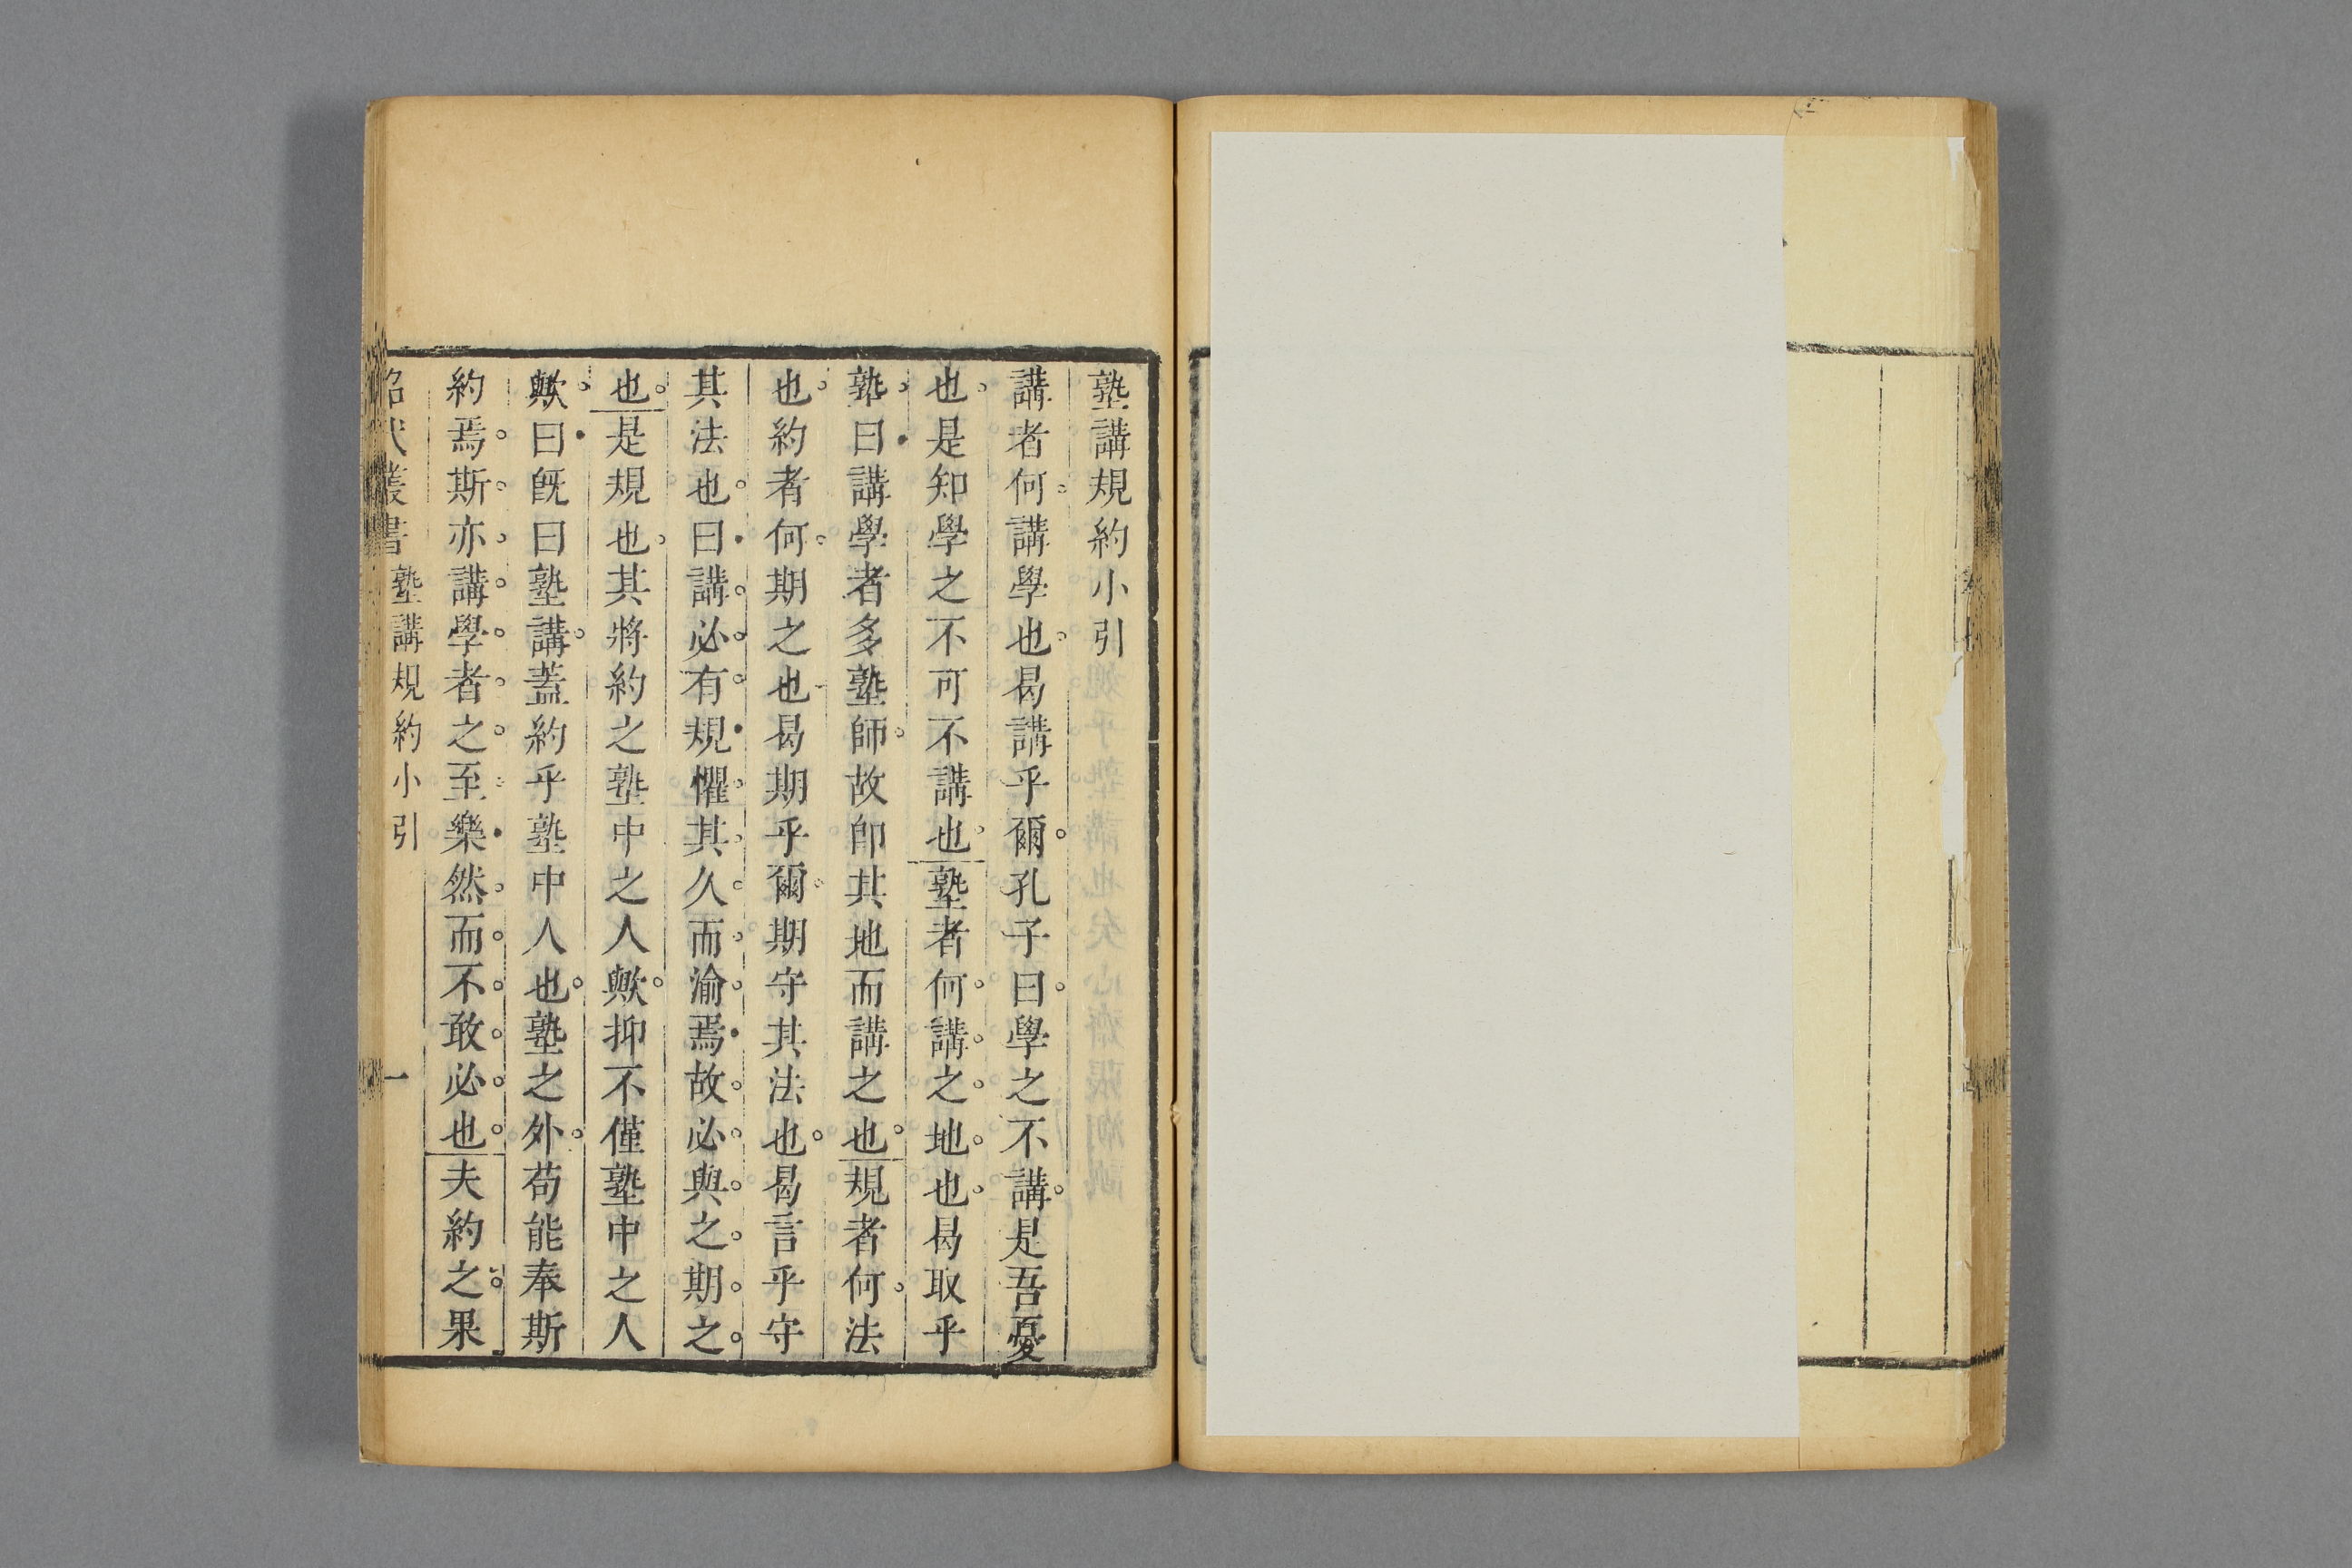 塾講規約小引
講者何講學也曷講乎爾孔子曰學之不講是吾憂
也是知學之不可不講也塾者何講之地也曷取乎
塾曰講學者多塾師故卽其地而講之也規者何法
也約者何期之也曷期乎爾期守其法也曷言乎守
其法也曰講必有規懼其久而渝焉故必與之期之
也是規也其將約之塾中之人歟抑不僅塾中之人
歟曰旣曰塾講蓋約乎塾中人也塾之外苟能奉斯
約焉斯亦講學者之至樂然而不敢必也夫約之果
昭代叢書 塾講規約小引 一